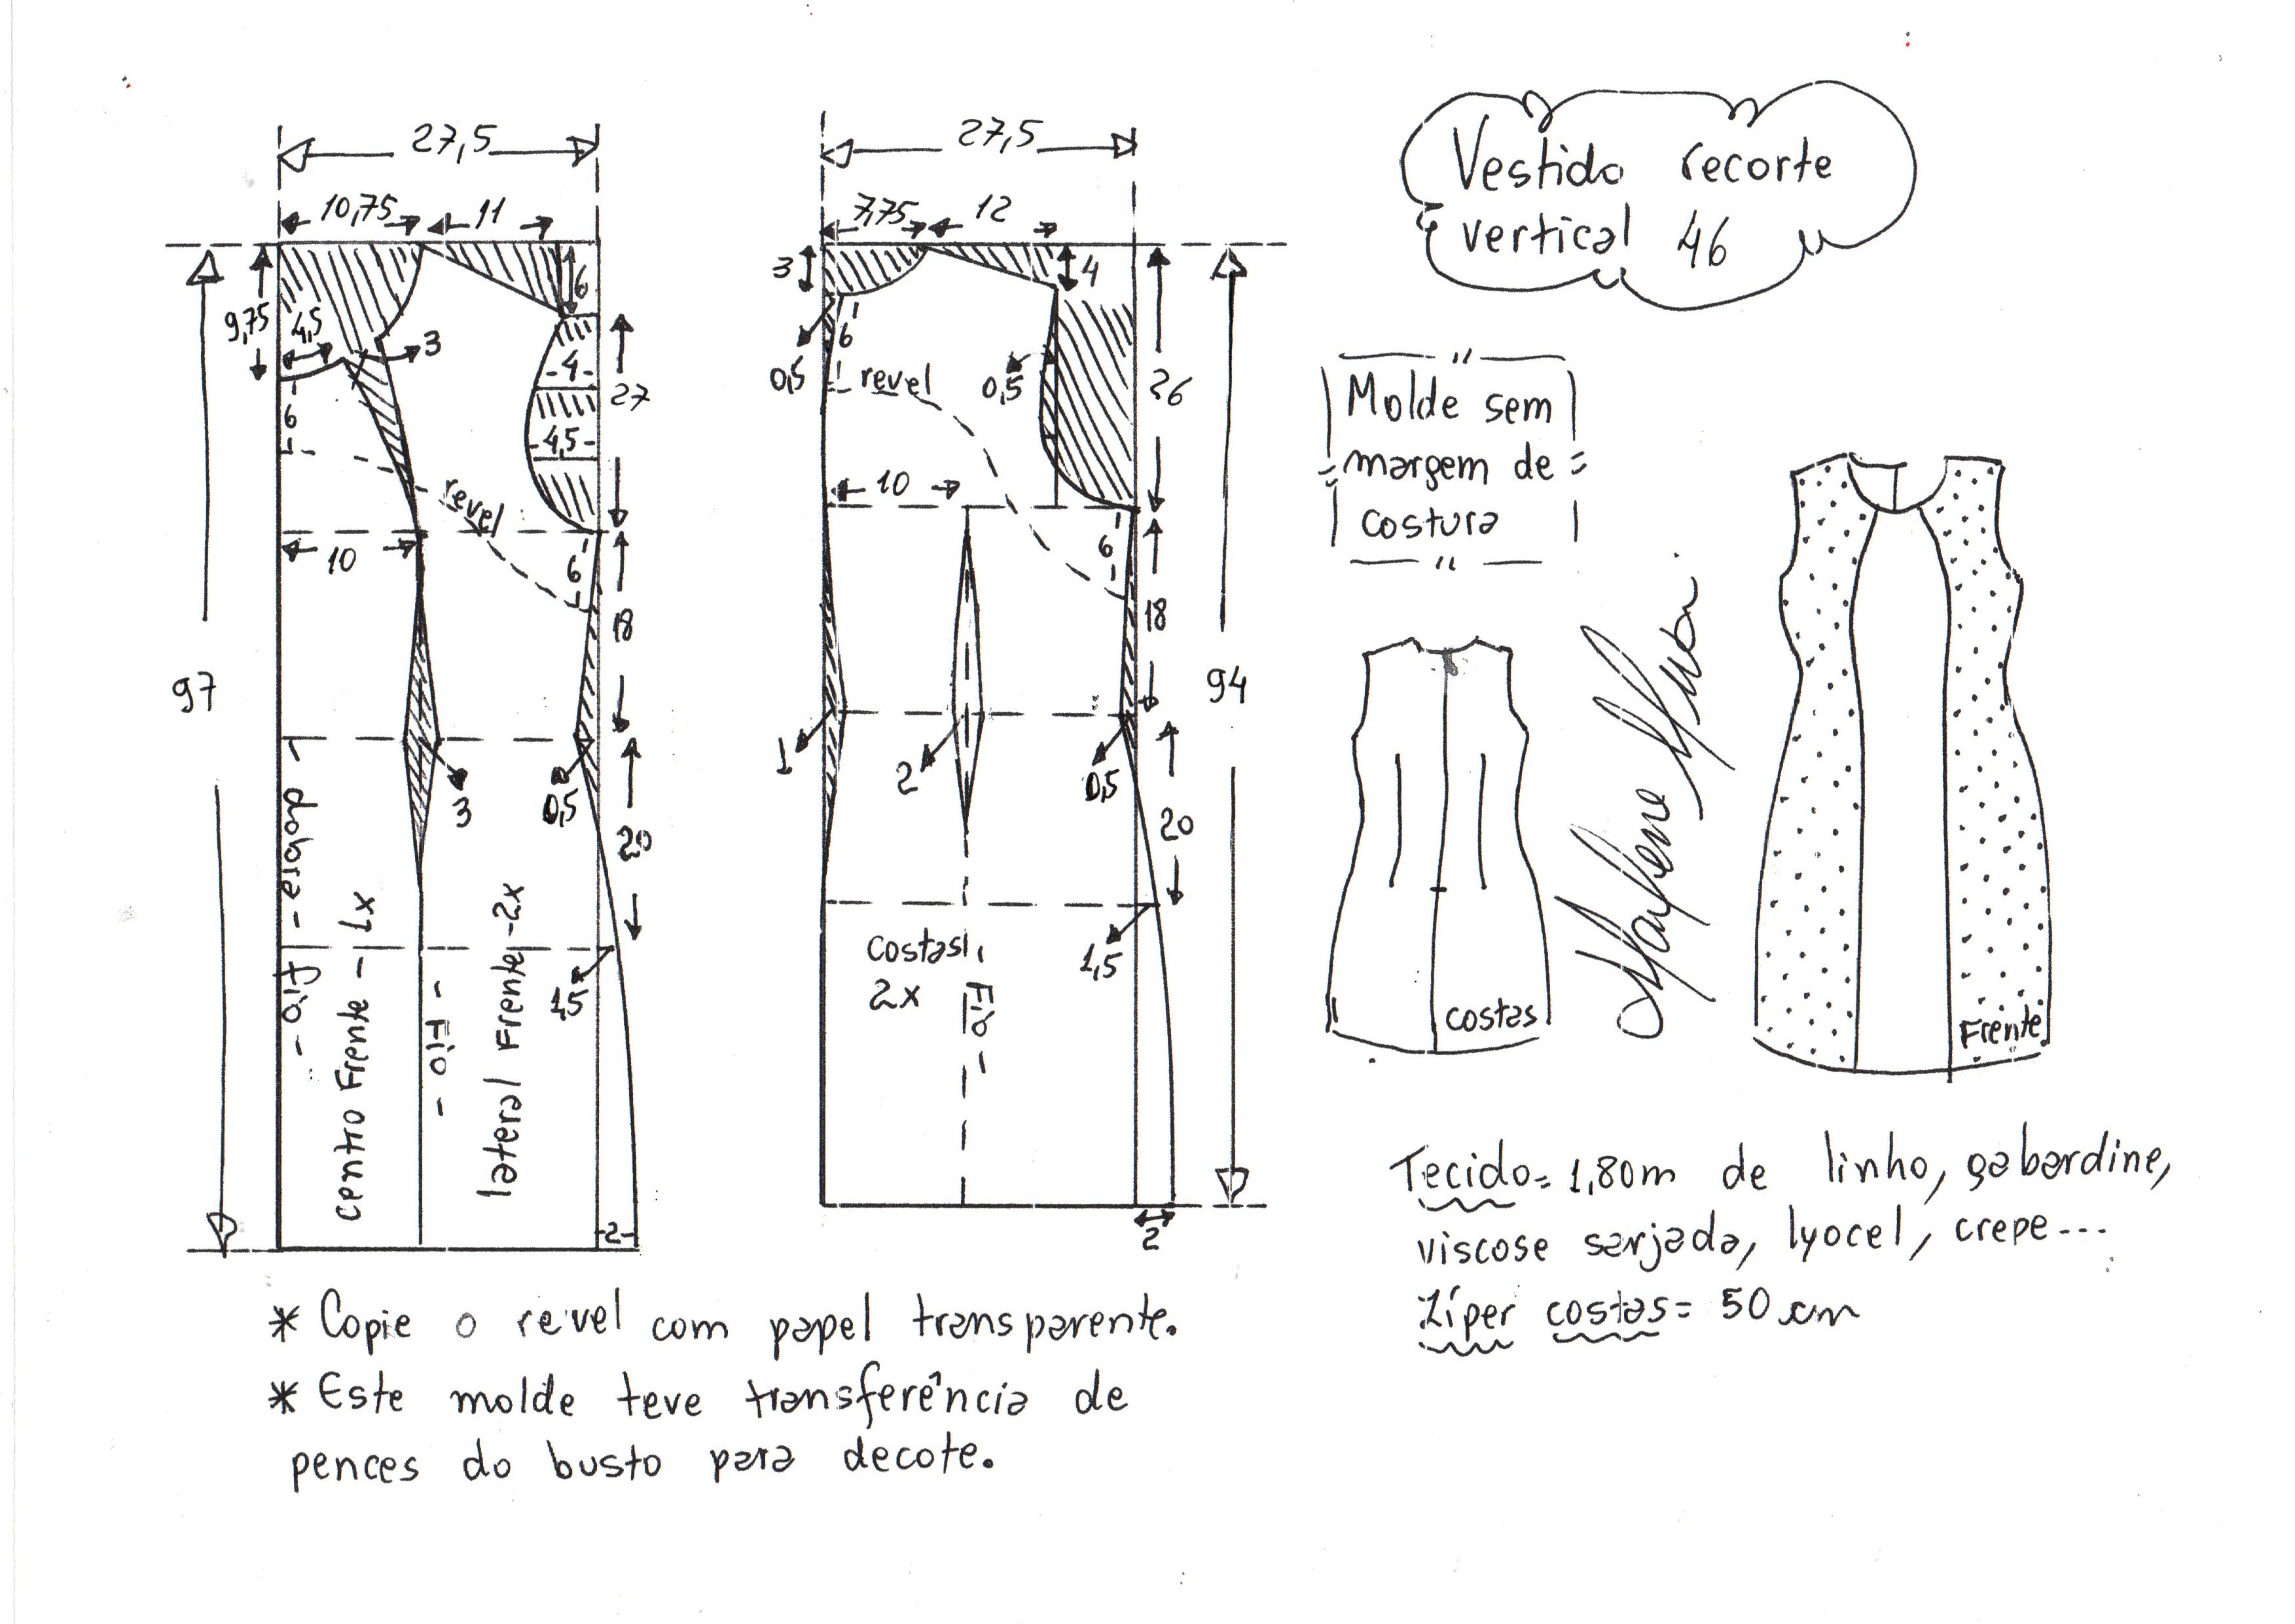 27,5
10,75
11
6
9,75
4,5
3
4
27
4,5
6
revel
10
6
18
97
3
0,5
20
dobra - fio -
centro Frente - 1x
- Fio -
lateral Frente - 2x
1,5
-2-
27,5
7,75
12
3
4
6
0,5
revel
0,5
26
10
6
18
94
1
2
0,5
20
costas
2x
Fio -
1,5
2
Vestido recorte
vertical 46
Molde sem
margem de
costura
costas
Marlene
Frente
Tecido= 1,80m de linho, gabardine,
viscose sarjada, lyocel, crepe...
Zíper costas= 50 cm
* Copie o revel com papel transparente.
* Este molde teve transferência de
pences do busto para decote.